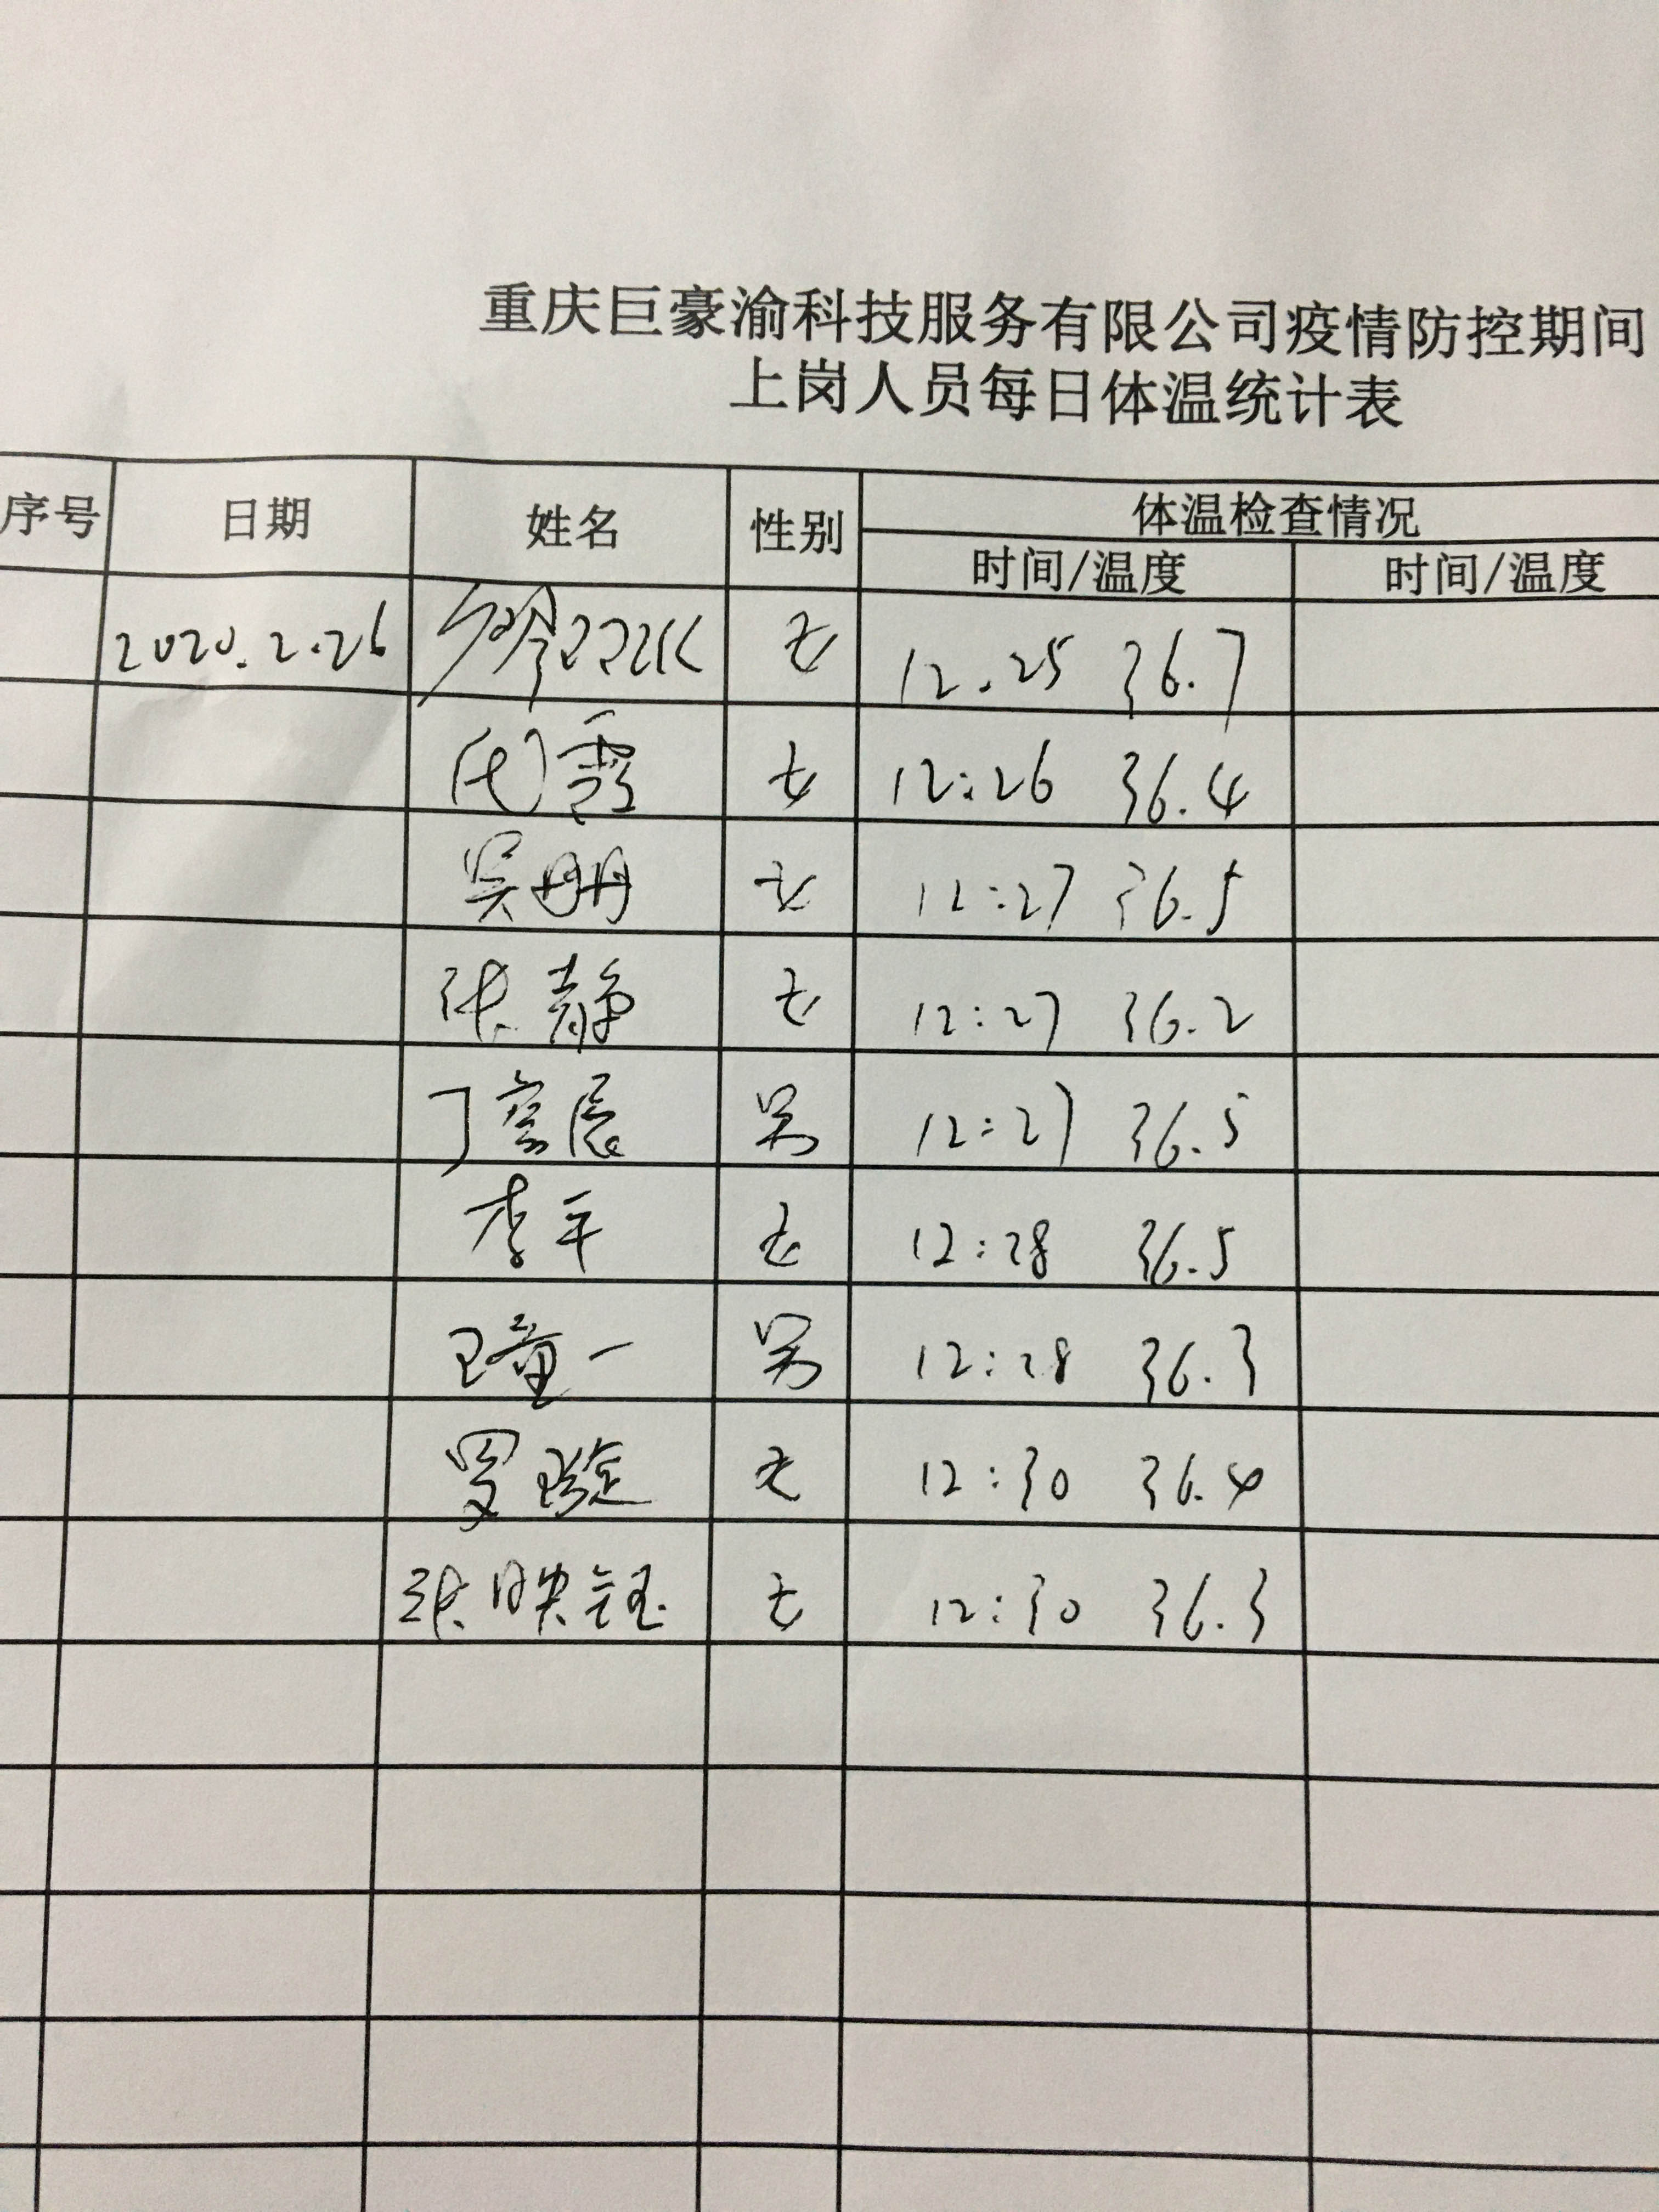 重庆巨豪渝科技服务有限公司疫情防控期间
上岗人员每日体温统计表
序号 日期 姓名 性别 体温检查情况
时间/温度 时间/温度
2020.2.26 女 12.25 36.7
代雪 女 12:26 36.4
吴丹丹 女 12:27 36.5
张静 女 12:27 36.2
丁宏辰 男 12:27 36.5
李平 女 12:28 36.5
王童一 男 12:28 36.3
罗璇 女 12:30 36.4
张映钰 女 12:30 36.3